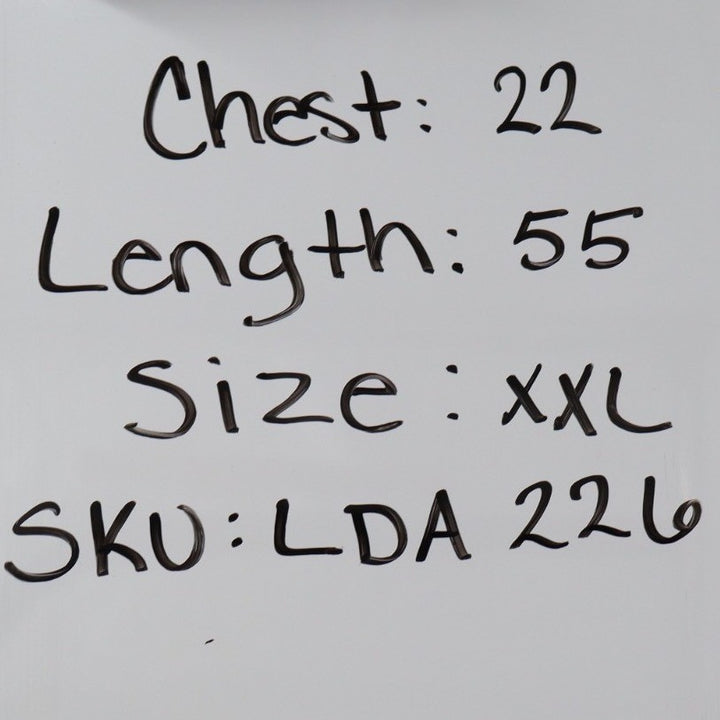 Chest: 22
Length: 55
Size: XXL
SKU: LDA 226